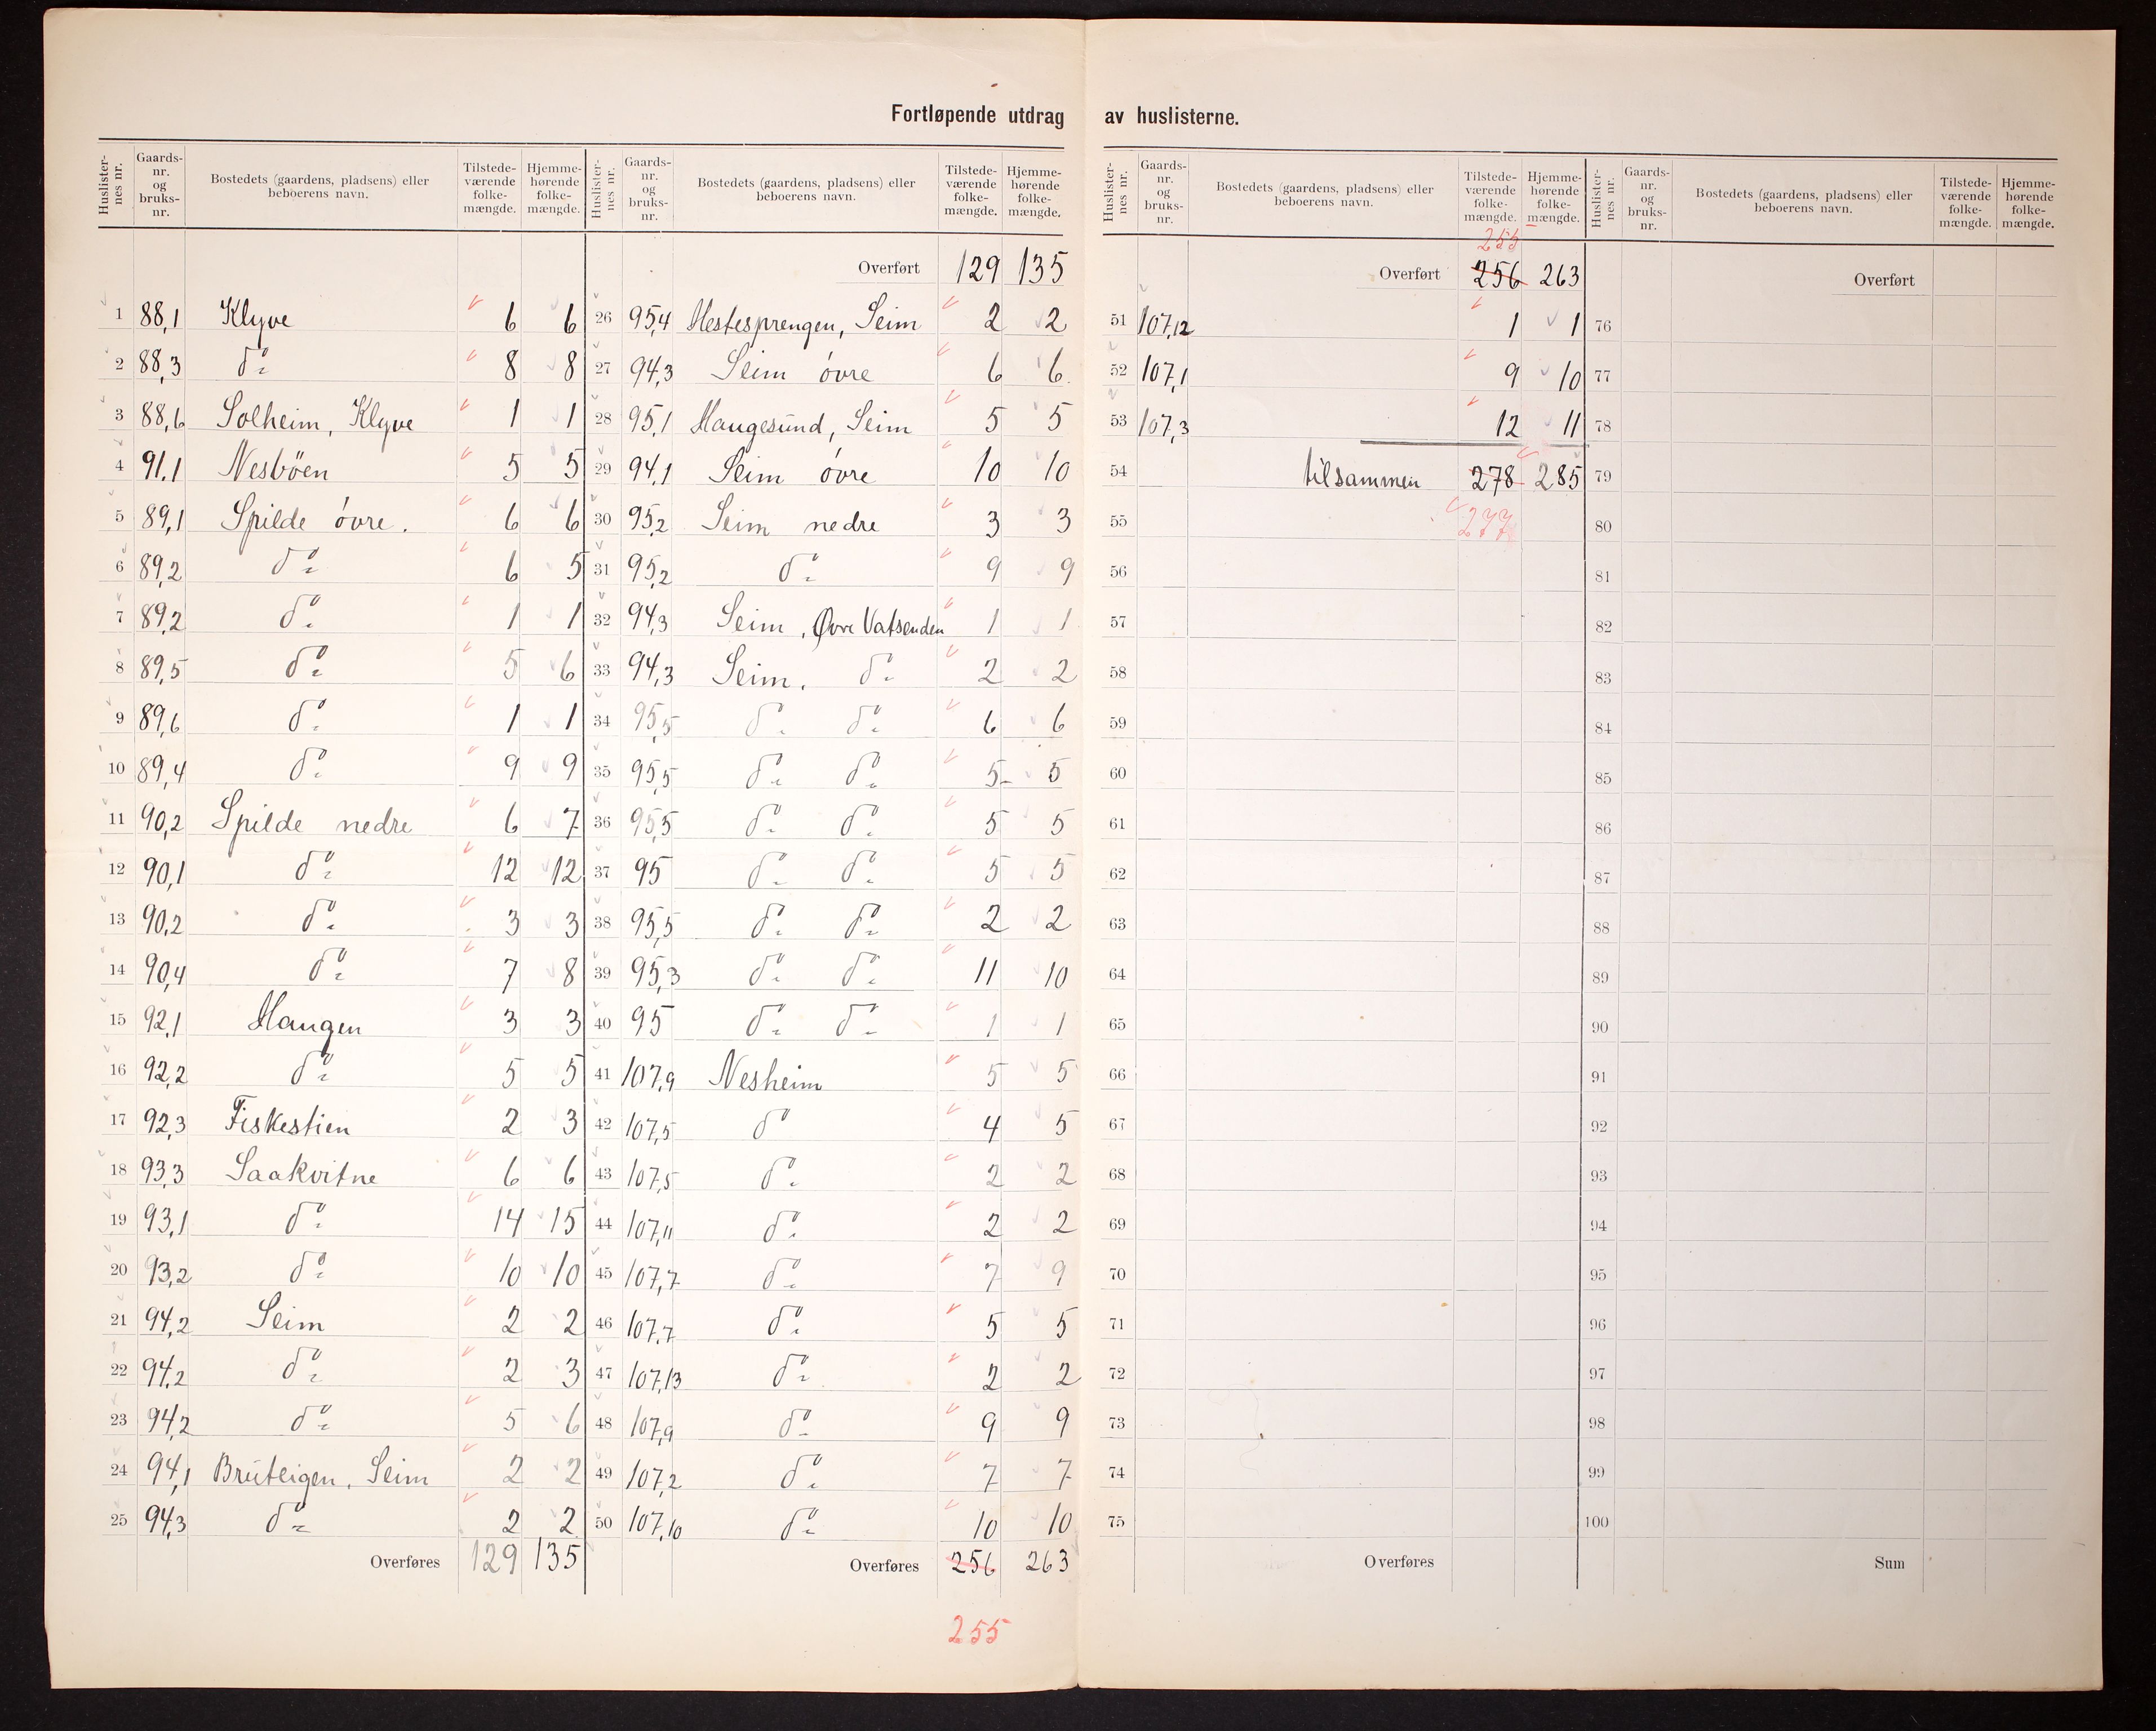 Fortløpende utdrag av huslisterne.
Huslister-nes nr. Gaards-nr. og bruks-nr. Bostedets (gaardens, pladsens) eller beboerens navn. Tilstede-værende folke-mængde. Hjemme-hørende folke-mængde.
1 88,1 Klyve 6 6
2 88,3 do 8 8
3 88,6 Solheim, Klyve 1 1
4 91,1 Nesböen 5 5
5 89,1 Spilde övre. 6 6
6 89,2 do 6 5
7 89,2 do 1 1
8 89,5 do 5 6
9 89,6 do 1 1
10 89,4 do 9 9
11 90,2 Spilde nedre 6 7
12 90,1 do 12 12
13 90,2 do 3 3
14 90,4 do 7 8
15 92,1 Haugen 3 3
16 92,2 do 5 5
17 92,3 Fiskestien 2 3
18 93,3 Saakvitne 6 6
19 93,1 do 14 15
20 93,2 do 10 10
21 94,2 Seim 2 2
22 94,2 do 2 3
23 94,2 do 5 6
24 94,1 Bruteigen, Seim 2 2
25 94,3 do 2 2
Overføres 129 135
Huslister-nes nr. Gaards-nr. og bruks-nr. Bostedets (gaardens, pladsens) eller beboerens navn. Tilstede-værende folke-mængde. Hjemme-hørende folke-mængde.
Overført 129 135
26 95,4 Hestesprengen, Seim 2 2
27 94,3 Seim övre 6 6
28 95,1 Haugesund, Seim 5 5
29 94,1 Seim övre 10 10
30 95,2 Seim nedre 3 3
31 95,2 do 9 9
32 94,3 Seim, Øvre Vatsenden 1 1
33 94,3 Seim. do 2 2
34 95,5 do do 6 6
35 95,5 do do 5 5
36 95,5 do do 5 5
37 95 do do 5 5
38 95,5 do do 2 2
39 95,3 do do 11 10
40 95 do do 1 1
41 107,9 Nesheim 5 5
42 107,5 do 4 5
43 107,5 do 2 2
44 107,11 do 2 2
45 107,7 do 7 9
46 107,7 do 5 5
47 107,13 do 2 2
48 107,9 do 9 9
49 107,2 do 7 7
50 107,10 do 10 10
Overføres 256 263
255
Huslister-nes nr. Gaards-nr. og bruks-nr. Bostedets (gaardens, pladsens) eller beboerens navn. Tilstede-værende folke-mængde. Hjemme-hørende folke-mængde.
255
Overført 256 263
51 107,12 1 1
52 107,1 9 10
53 107,3 12 11
54 tilsammen 278 285
55 277
56
57
58
59
60
61
62
63
64
65
66
67
68
69
70
71
72
73
74
75
Overføres
Huslister-nes nr. Gaards-nr. og bruks-nr. Bostedets (gaardens, pladsens) eller beboerens navn. Tilstede-værende folke-mængde. Hjemme-hørende folke-mængde.
Overført
76
77
78
79
80
81
82
83
84
85
86
87
88
89
90
91
92
93
94
95
96
97
98
99
100
Sum